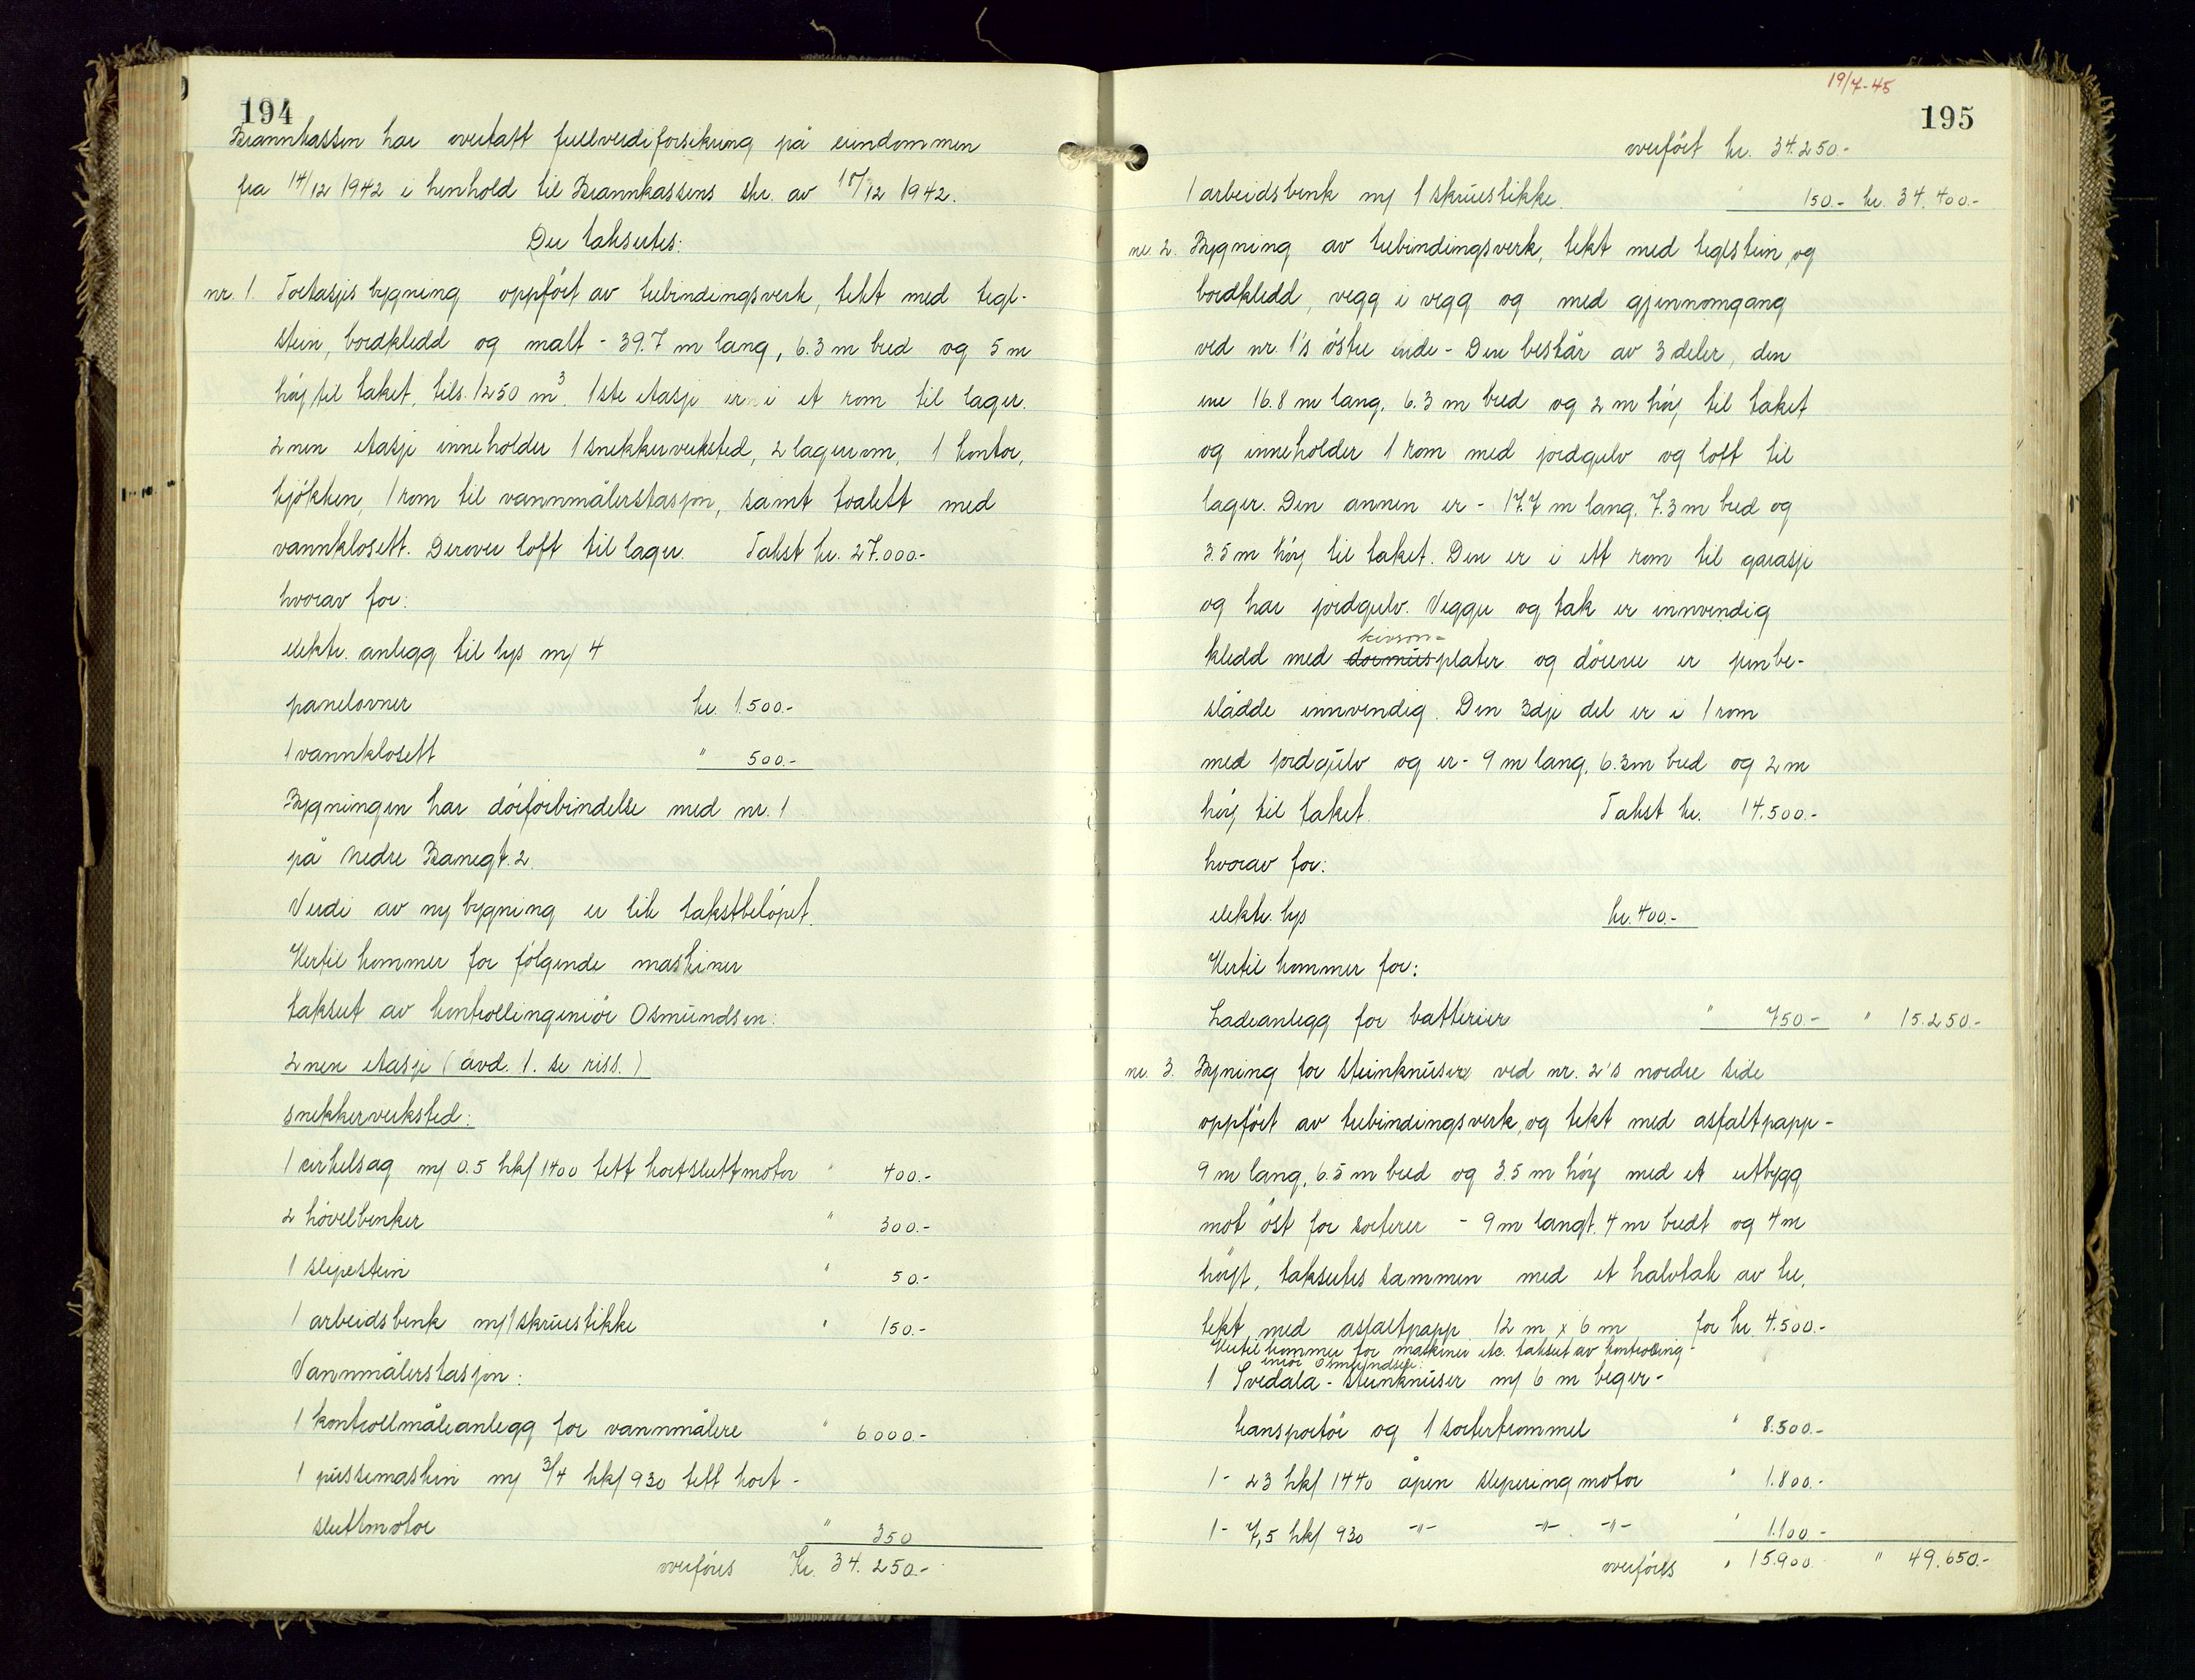 194
Brannkassen har overtatt fullverdiforsikring på eiendommen
fra 14/12 1942 i henhold til Brannkassens skr. av 18/12 1942.
Der takseres:
nr. 1. Toetasjes bygning oppført av trebindingsverk, tekt med tegl-
stein, bordkledd og malt - 39.7 m lang, 6.3 m bred og 5 m
høy til taket, tils. 1250 m³. 1ste etasje er i et rom til lager.
2nen etasje inneholder 1 snekkerverksted, 2 lagerrom, 1 kontor,
kjøkken, 1 rom til vannmålerstasjon, samt toalett med
vannklosett. Derover loft til lager. Takst kr. 27.000.-
hvorav for:
elektr. anlegg til lys m/ 4
panelovner kr. 1.500.-
1 vannklosett " 500.-
Bygningen har dørforbindelse med nr. 1
på Nedre Banegt. 2.
Verdi av ny bygning er lik takstbeløpet.
Hertil kommer for følgende maskiner
taksert av kontrollingeniør Osmundsen:
2nen etasje (avd. 1. se riss.)
snekkerverksted:
1 cirkelsag m/ 0.5 hk/ 1400 tett kortsluttmotor " 400.-
2 høvelbenker " 300.-
1 slipestein " 50.-
1 arbeidsbenk m/1 skruestikke " 150.-
Vannmålerstasjon:
1 kontrollmåleanlegg for vannmålere " 6.000.-
1 pussemaskin m/ 3/4 hk/ 930 tett kort-
sluttmotor " 350
overføres Kr. 34.250.-
19/7-45
195
overført kr. 34.250.-
1 arbeidsbenk m/ 1 skruestikke. " 150.- kr. 34.400.-
nr. 2. Bygning av trebindingsverk, tekt med teglstein og
bordkledd, vegg i vegg og med gjennomgang
ved nr. 1's østre ende - Den består av 3 deler, den
ene 16.8 m lang, 6.3 m bred og 2 m høy til taket
og inneholder 1 rom med jordgulv og loft til
lager. Den annen er - 17.7 m lang, 7.3 m bred og
3.5 m høy til taket. Den er i ett rom til garasje
og har jordgulv. Vegger og tak er innvendig
kledd med plater og dørene er jernbe-
slådde innvendig. Den 3dje del er i 1 rom
med jordgulv og er - 9 m lang, 6.3m bred og 2 m
høy til taket. Takst kr. 14.500.-
hvorav for:
elektr. lys kr. 400.-
Hertil kommer for:
Ladeanlegg for batterier " 750.- " 15.250.-
nr. 3. Bygning for steinknuser ved nr. 2's nordre side
oppført av trebindingsverk, og tekt med asfaltpapp -
9 m lang, 6.5 m bred og 3.5 m høy med et utbygg
mot øst for sorterer - 9 m langt, 4 m bredt og 4 m
høyt, takseres sammen med et halvtak av tre,
tekt med asfaltpapp 12 m x 6 m for kr. 4.500.-
Hertil kommer for maskiner etc. taksert av kontrolling-
eniør Osmundsen:
1 Svedala - steinknuser m/ 6 m beger-
transportør og 1 sortertrommel " 8.500.-
1- 23 hk/ 1440 åpen sleperingmotor " 1.800.-
1- 7,5 hk/ 930 -"- -"- -"- " 1.100.-
overføres " 15.900. " 49.650.-